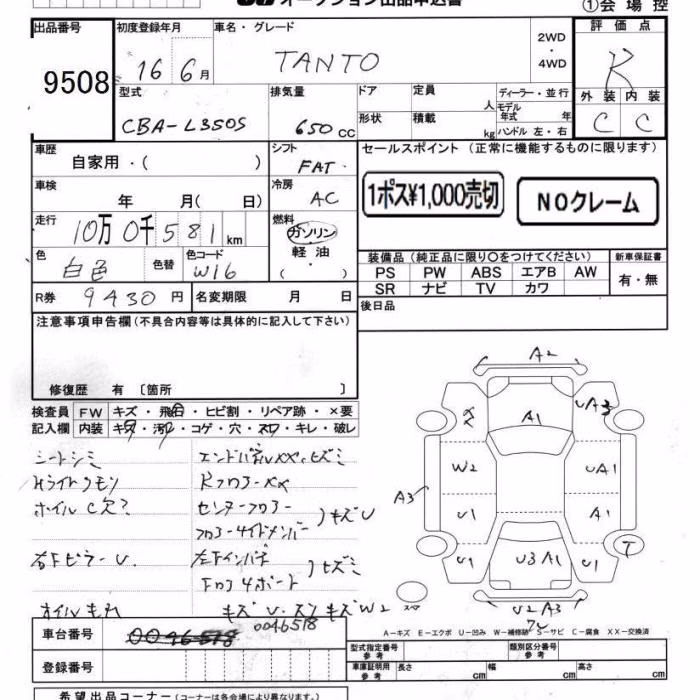 オークション出品申込書
①会場控
出品番号 初度登録年月 車名・グレード 2WD・4WD 評価点
9508 16 6月 TANTO R
型式 排気量 ドア 定員 人 ディーラー・並行 外装 内装
CBA-L350S 650cc 形状 積載 kg モデル年式 年 ハンドル 左・右 C C
車歴 自家用・( ) シフト FAT セールスポイント (正常に機能するものに限ります)
車検 年 月( 日) 冷房 AC 1ポス¥1,000売切 NOクレーム
走行 10万0千581km 燃料 ガソリン 軽油・( )
色 白色 色替 色コード W16
装備品(純正品に限り○をつけてください) 新車保証書
PS PW ABS エアB AW 有・無
SR ナビ TV カワ
R券 9430円 名変期限 月 日 後日品
注意事項申告欄(不具合内容等は具体的に記入して下さい)
修復歴 有 [箇所 ]
検査員 FW キズ・飛石・ヒビ割・リペア跡・×要
記入欄 内装 キズ・汚れ・コゲ・穴・スレ・キレ・破レ
シートシミ
Hライトクモリ RフロアーXX
ホイルC欠け センターフロアー
フロアーサイドメンバー )キズU
右下ピラーU.
オイルもれ キズ U.
A2
A1 UA3
W2 UA1
A3 U1 A1
U1 U3A1 U1 T
スペア W2 U2A3
A-キズ E-エクボ U-凹み W-補修跡 S-サビ C-腐食 XX-交換済
車台番号 0046518 0046518
登録番号
型式指定番号 参考 類別区分番号 参考
車庫証明用 参考 長さ cm 幅 cm 高さ cm
希望出品コーナー(コーナーは各会場により異なります。)